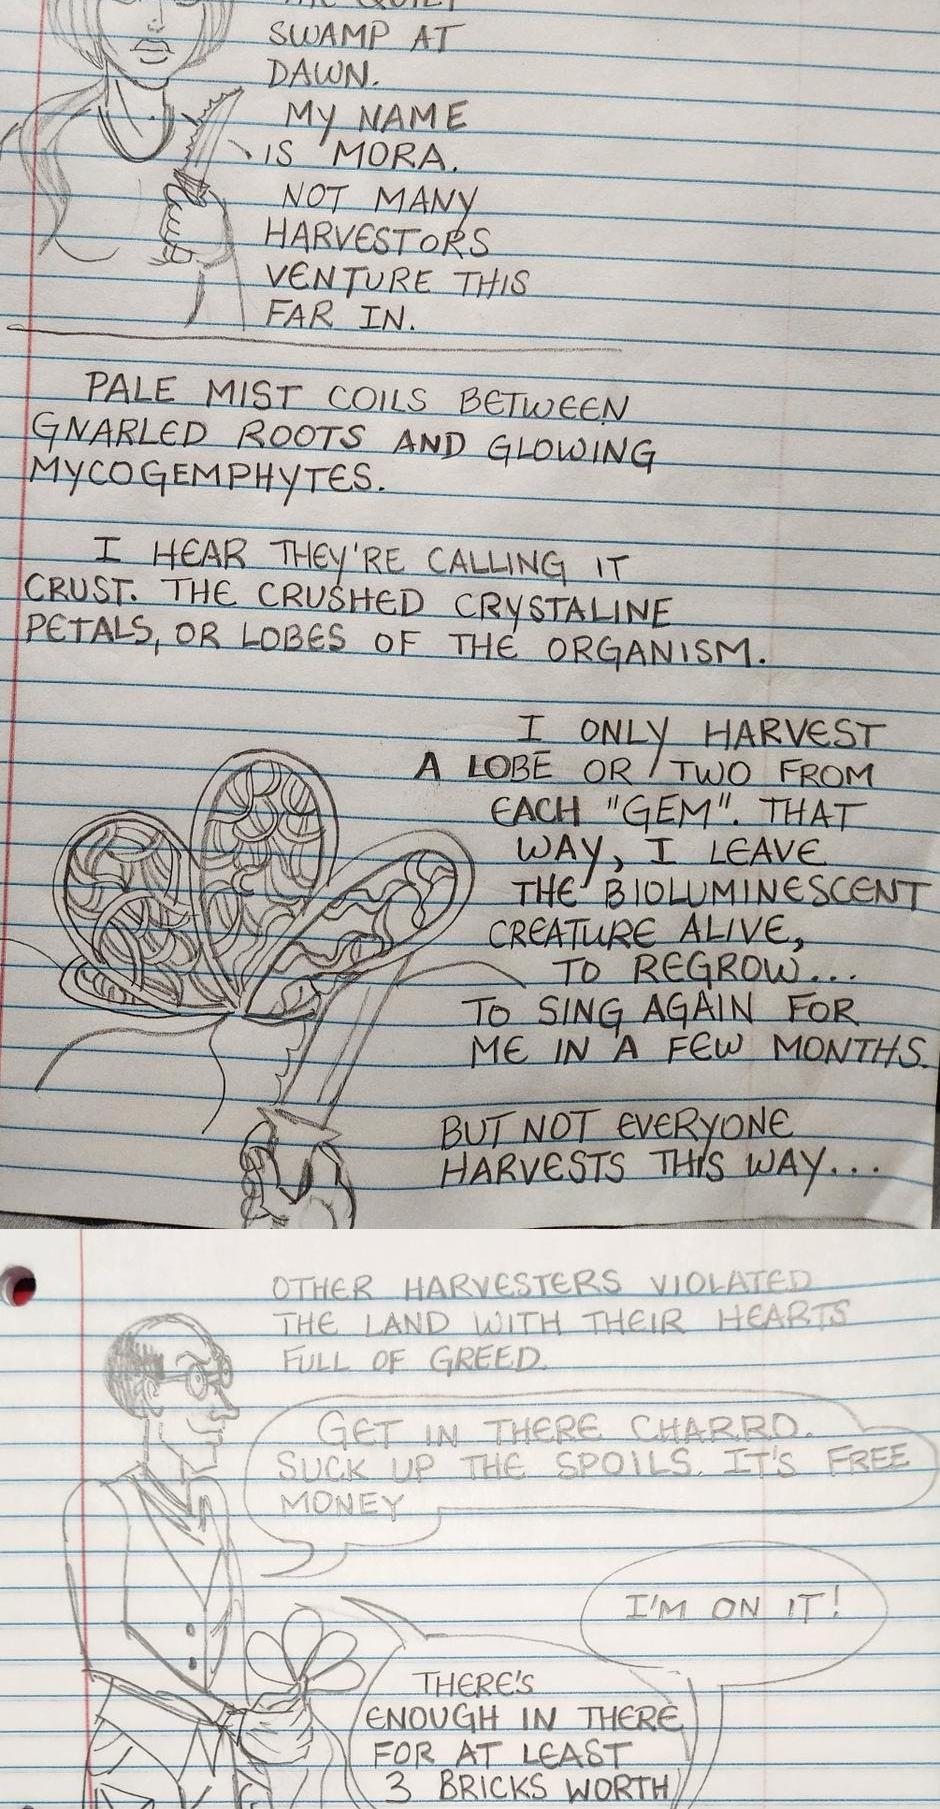 SWAMP AT
DAWN.
MY NAME
IS MORA.
NOT MANY
HARVESTORS
VENTURE THIS
FAR IN.
PALE MIST COILS BETWEEN
GNARLED ROOTS AND GLOWING
MYCOGEMPHYTES.
I HEAR THEY'RE CALLING IT
CRUST. THE CRUSHED CRYSTALINE
PETALS, OR LOBES OF THE ORGANISM.
I ONLY HARVEST
A LOBE OR TWO FROM
EACH "GEM". THAT
WAY, I LEAVE
THE BIOLUMINESCENT
CREATURE ALIVE,
TO REGROW...
TO SING AGAIN FOR
ME IN A FEW MONTHS.
BUT NOT EVERYONE
HARVESTS THIS WAY...
OTHER HARVESTERS VIOLATED
THE LAND WITH THEIR HEARTS
FULL OF GREED.
GET IN THERE CHARRO.
SUCK UP THE SPOILS. IT'S FREE
MONEY
I'M ON IT!
THERE'S
ENOUGH IN THERE
FOR AT LEAST
3 BRICKS WORTH